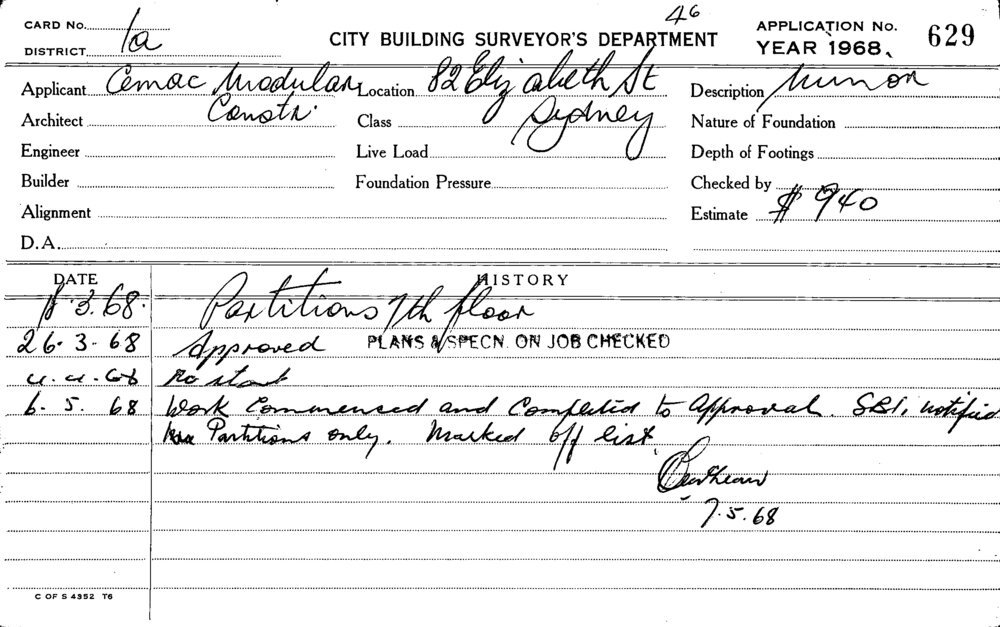 46
CARD No.
DISTRICT 1a
CITY BUILDING SURVEYOR'S DEPARTMENT
APPLICATION No. 629
YEAR 1968
Applicant Cemac Modular Location 82 Elizabeth St Description Minor
Architect Constr. Class Sydney Nature of Foundation
Engineer Live Load Depth of Footings
Builder Foundation Pressure Checked by
Alignment Estimate $ 940
D.A.
DATE HISTORY
3.68. Partitions 7th floor
26.3.68 Approved PLANS & SPECN. ON JOB CHECKED
No start
6.5.68 Work Commenced and Completed to Approval. SBI, notified
Partitions only. Marked off list
7.5.68
C OF S 4352 T6